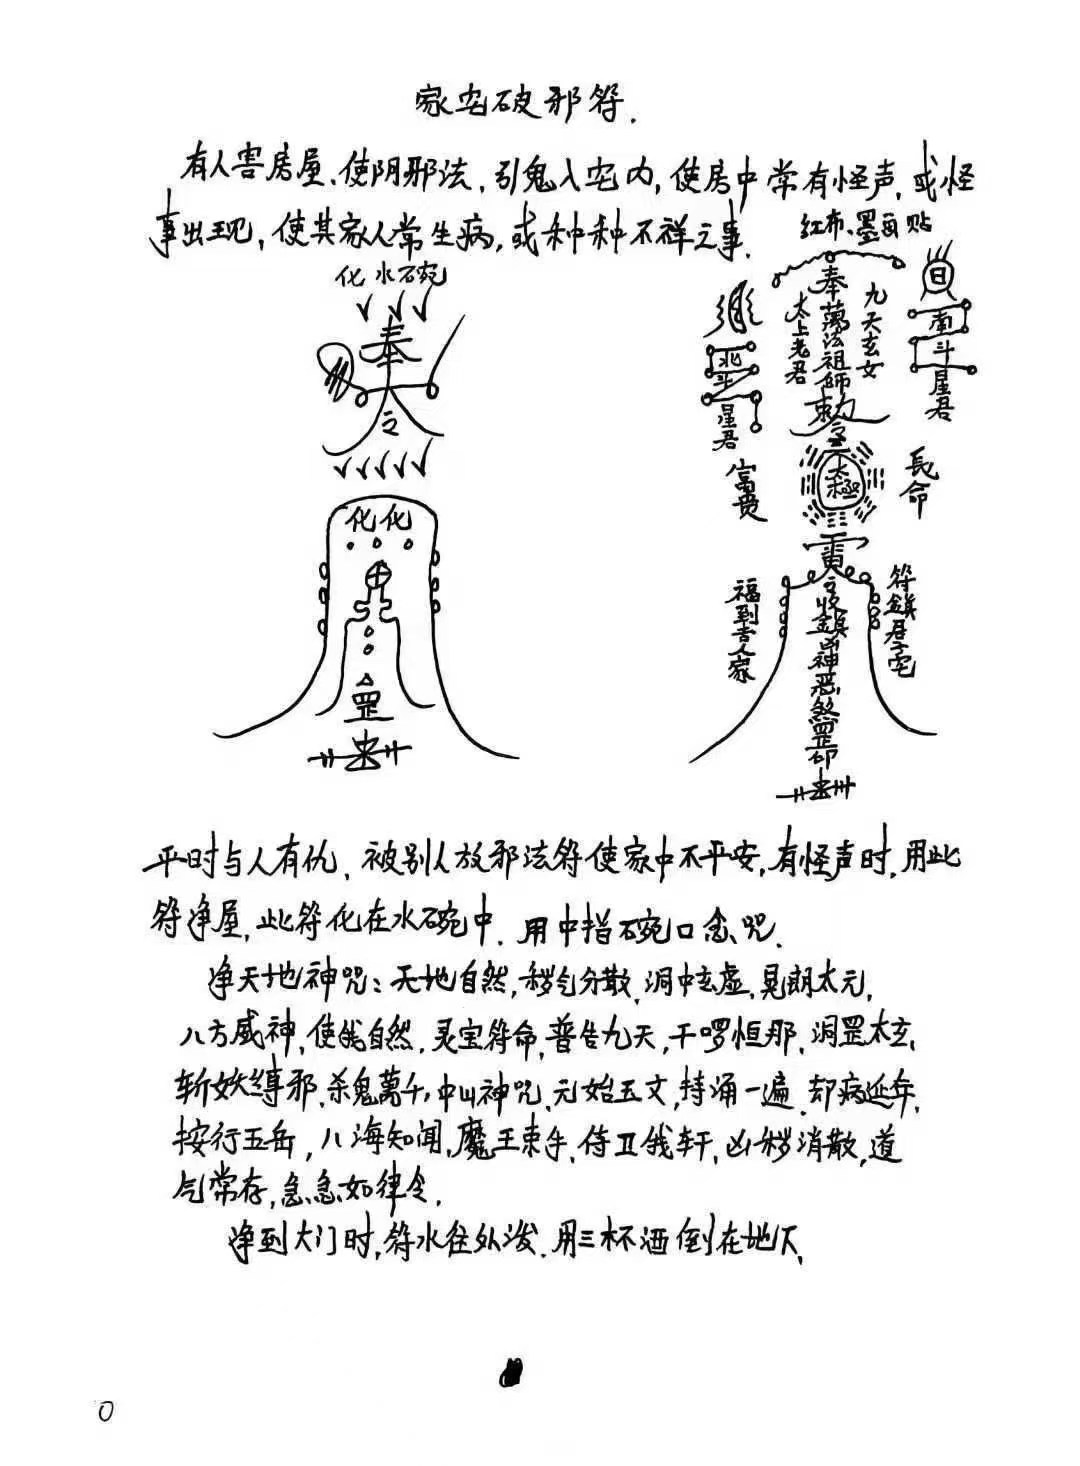 家宅破邪符.
有人害房屋、使阴邪法,引鬼入宅内,使房中常有怪声,或怪
事出现,使其家人常生病,或种种不祥之事.
化水碗
奉
令
化化
罡
红布、墨画贴
奉萬法祖師勅令
九天玄女
太上老君
日
南斗星君
月
北斗星君
太極
富贵
長命
雷
收鎮凶神恶煞罡印
福到吉人家
符鎮君子宅
平时与人有仇,被别人放邪法符使家中不平安,有怪声时,用此
符净屋,此符化在水碗中.用中指碗口念咒.
净天地神咒:天地自然,秽气分散,洞中玄虚,晃朗太元,
八方威神,使我自然,灵宝符命,普告九天,干啰恒那,洞罡太玄,
斩妖缚邪,杀鬼萬千,中山神咒,元始玉文,持诵一遍,却病延年,
按行五岳,八海知闻,魔王束手,侍卫我轩,凶秽消散,道
气常存,急急如律令.
净到大门时,符水往外泼.用三杯酒倒在地下.
0